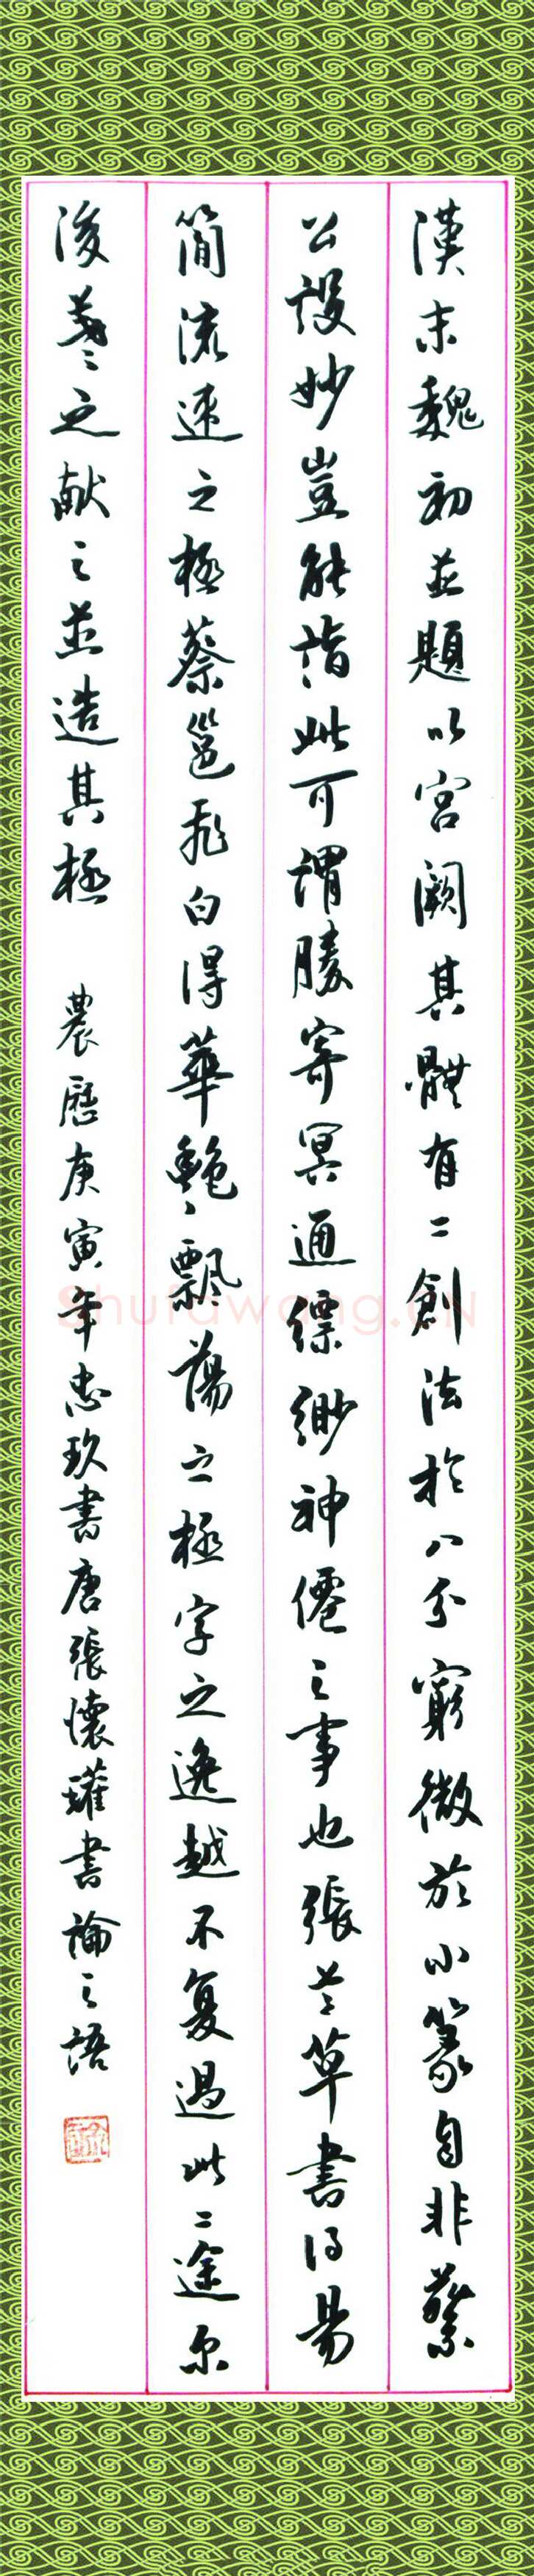 漢末魏初並題以宮闕其體有二創法於八分窮微於小篆自非蔡
公設妙豈能詣此可謂勝寄冥通縹緲神僊之事也張芝草書得易
簡流速之極蔡邕飛白得華艷飄蕩之極字之逸越不复過此二途尔
後羲之献之並造其極
農歷庚寅年忠玖書唐張懷瓘書論之語
Shufawang.CN